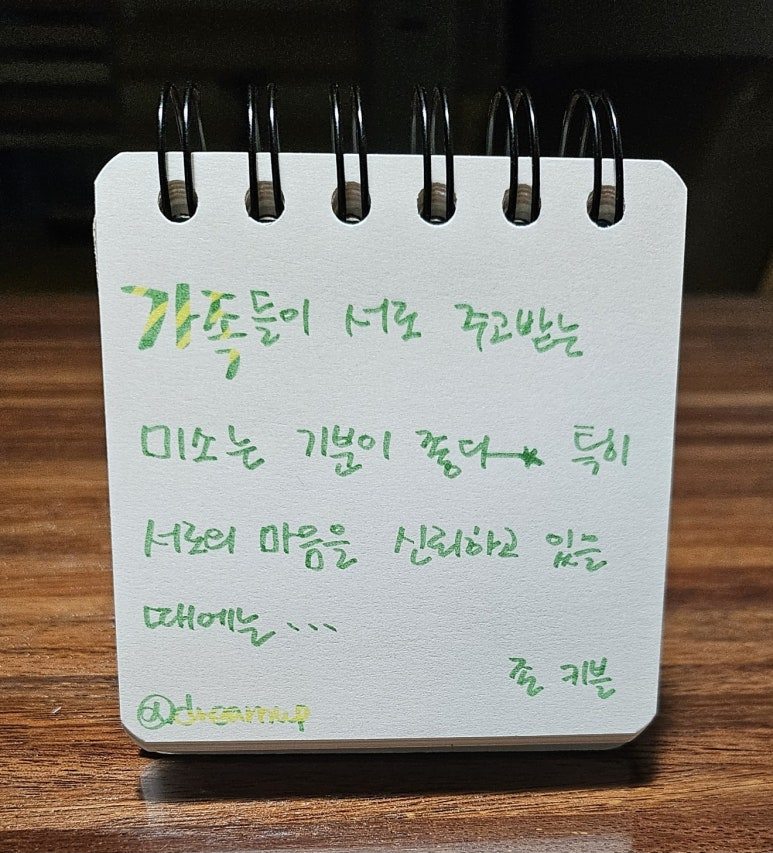 가족들이 서로 주고받는
미소는 기분이 좋다 특히
서로의 마음을 신뢰하고 있을
때에는...
죤 키블
@dreamup